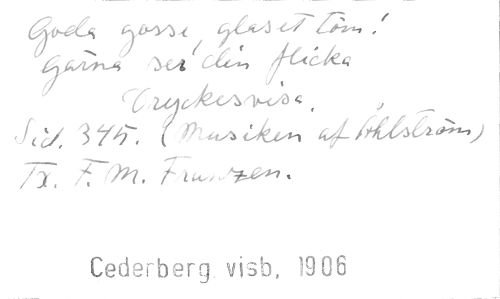 Goda gosse, glaset töm!
Gärna ser din flicka
Dryckesvisa.
Sid. 345. (Musiken af Åhlström)
Tx. F. M. Franzen.
Cederberg visb, 1906